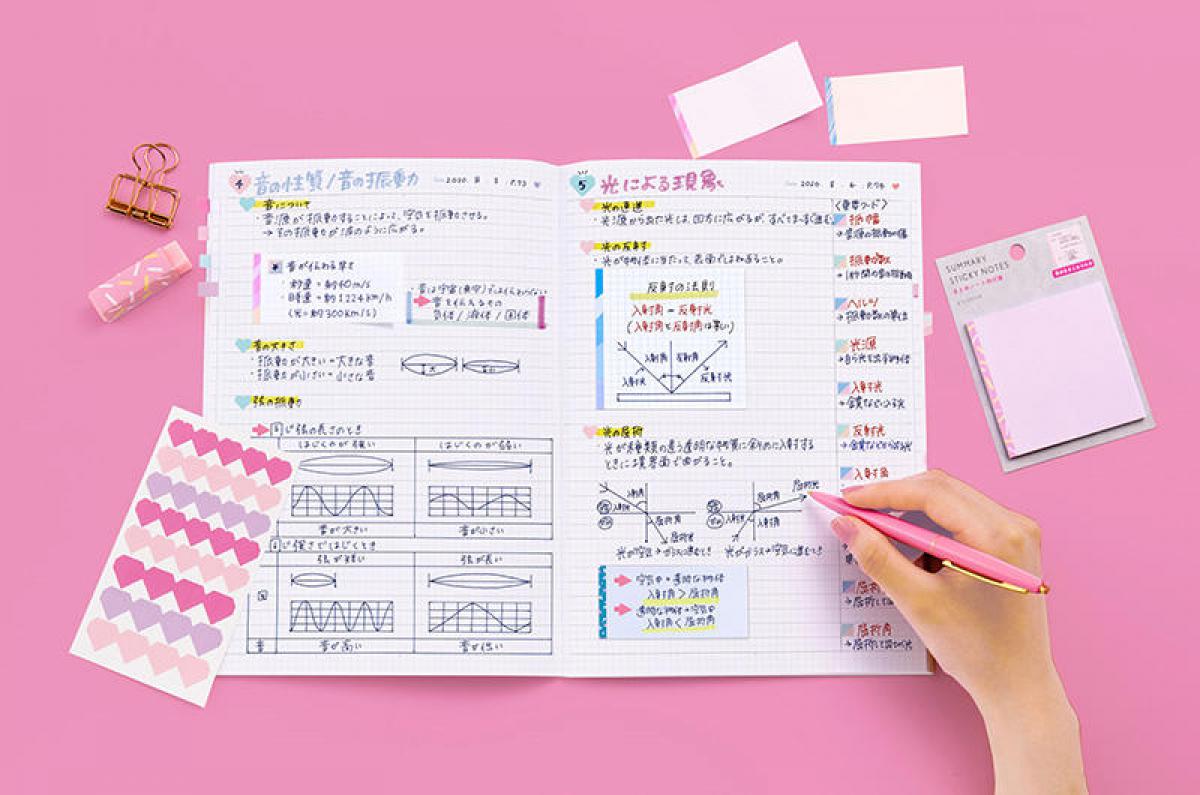 4 音の性質/音の振動
Date 2020. 8 . 3 . P.73
音について
・音源が振動することによって、空気を振動させる。
→その振動が波のように広がる。
音が伝わる早さ
・時速 = 約1224km/h
(光=約300km/s)
・音は宇宙(真空)では伝わらない
音を伝えるもの
気体/液体/固体
音の大きさ
・振動が大きい=大きな音
・振動が小さい=小さな音
弦の振動
同じ弦の長さのとき
はじくのが強い
はじくのが弱い
音が大きい
音が小さい
同じ強さではじくとき
弦が短い
弦が長い
図
音
音が高い
音が低い
5 光による現象
Date 2020. 8 . 4 . P.74
光の直進
光の反射
・光が物体に当たって、表面ではねること。
反射の法則
入射角=反射光
(入射角と反射角は等しい)
入射角
反射角
入射光
反射光
光の屈折
・光が種類の違う透明な物質に斜めに入射する
ときに境界面で曲がること。
入射角
入射光
屈折角
屈折光
屈折角
入射角
光が空気→ガラスに進むとき
光がガラス→空気に進むとき
空気中→透明な物体
入射角>屈折角
透明な物体→空気中
入射角<屈折角
<重要ワード>
振幅
→音源の振動の幅
振動数
→1秒間の音の振動数
ヘルツ
→振動数の単位
光源
→自ら光を出す物体
入射光
→金賞などに入る光
反射光
入射角
屈折角
SUMMARY
STICKY NOTES